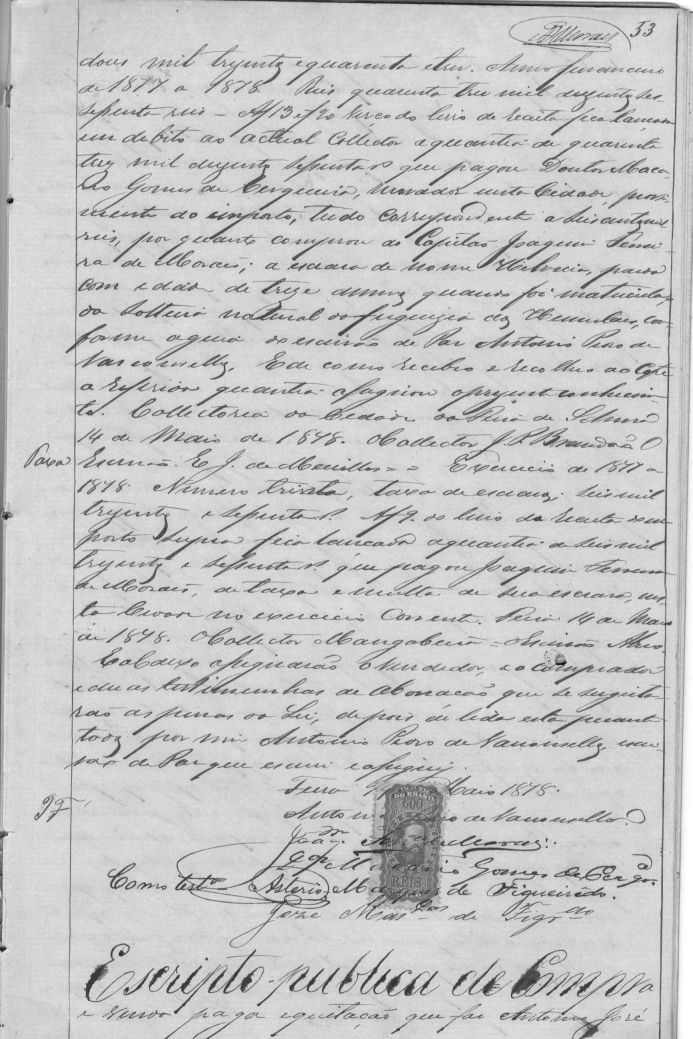 33
dous mil trezentos e quarenta e tres. Anno financeiro
de 1877 a 1878. Reis quarenta tres mil duzentos e
sessenta reis = Af 13 e f 20 verso do livro de receita fica lançado
em debito ao actual Collector a quantia de quarenta
tres mil duzentos sessenta rs que pagou Doutor Maca
rio Gomes de Cerqueira, morador nesta Cidade, prove
niente do imposto, tudo correspondente a seiscentos mil
reis, por quanto comprou do Capitão Joaquim Ferrei
ra de Moraes; a escrava de nome Helvecia, parda
com edade de treze annos quando foi matricula
da solteira natural da freguezia dos Humildes, con
forme a guia do escrivão de Paz Antonio Pedro de
Vasconcellos. E de como recebeu e recolheu ao Cofre
a referida quantia assignou o prezente conhecimen
to. Collectoria da Cidade da Feira de
14 de Maio de 1878. O Collector J. P. Brandão O
Taxa Escrivão. E. J. de == Exercicio de 1877 a
1878. Numero trinta, taxa de escravos. Seis mil
trezentos e sessenta rs. Af 9. do livro da Receita do im
posto supra fica lançada a quantia de seis mil
trezentos e sessenta rs. que pagou Joaquim Ferreira
de Moraes, de taxa e multa de sua escrava, nes
ta Cidade no exercicio corrente. Feira 14 de Maio
de 1878. O Collector Mangabeira = O Escrivão
E abaixo assignarão o vendedor, e o comprador
e duas testimunhas de abonação que se sugeita
rão as penas da Lei, depois de lida esta perante
todos por mim Antonio Pedro de Vasconcellos escri
vão de Paz que escrevi e assignei.
Feira Maio 1878.
Antonio Pedro de Vasconcellos
Joaqm Moraes
Macario Gomes de Cerqra
Como testa Asterio de Figueiredo.
José de Figrdo
DO BRASIL
600
REIS
Escripta publica de Compra
e venda paga e quitação que faz Antonio José